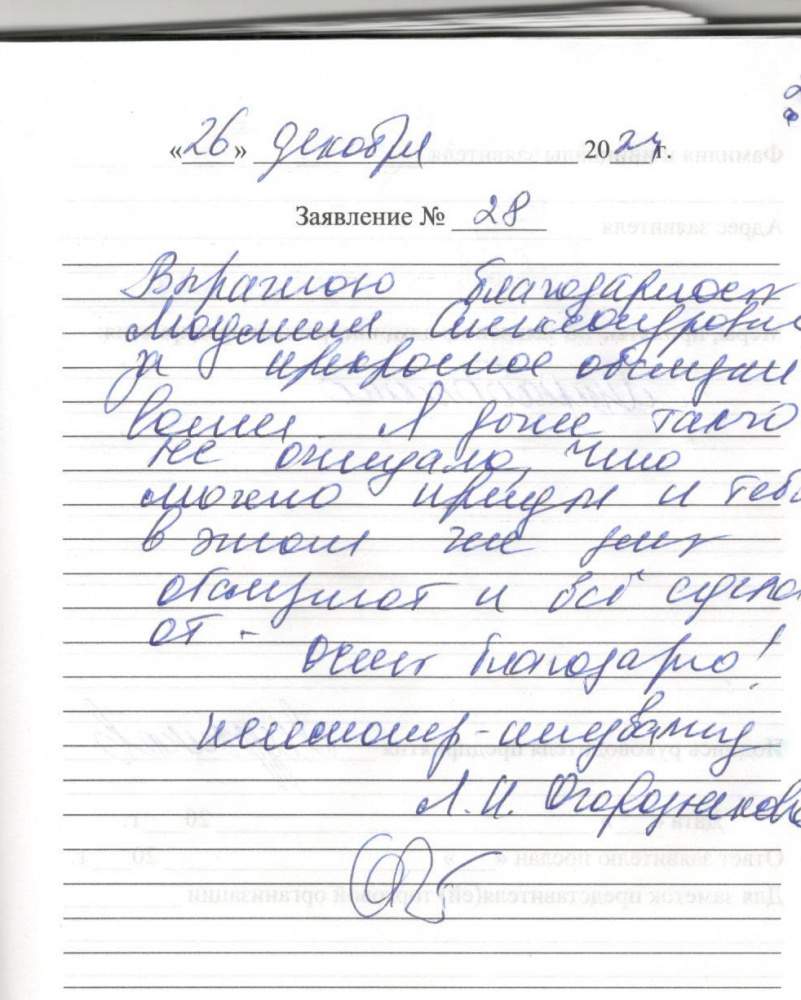 «26» декабря 2024 г.
Заявление № 28
Выражаю благодарность
Людмиле Александровне
за прекрасное обслужи
вание. Я даже такого
не ожидала, что
можно придти и тебя
в этот же день
обслужат и всё сдела
ют -
очень благодарна!
пенсионер-инвалид
Л.И. Огородникова